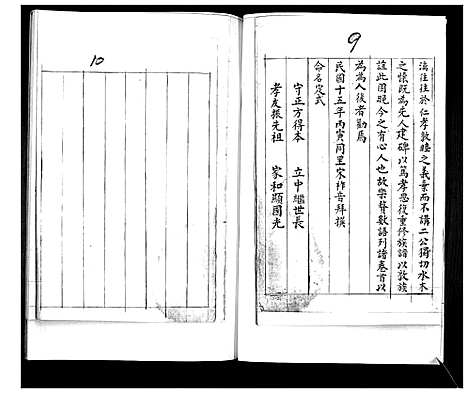 9
法往往於仁孝敦睦之義棄而不講二公獨切水木
之懷既為先人建碑以篤孝思復重修族譜以敦族
誼此固晚今之有心人也故樂贅數語列譜卷首以
為為人後者勸焉
民國十五年丙寅同里宋祚音拜撰
命名定式
守正方得本 立中繼世長
孝友振先祖 家和顯國光
10